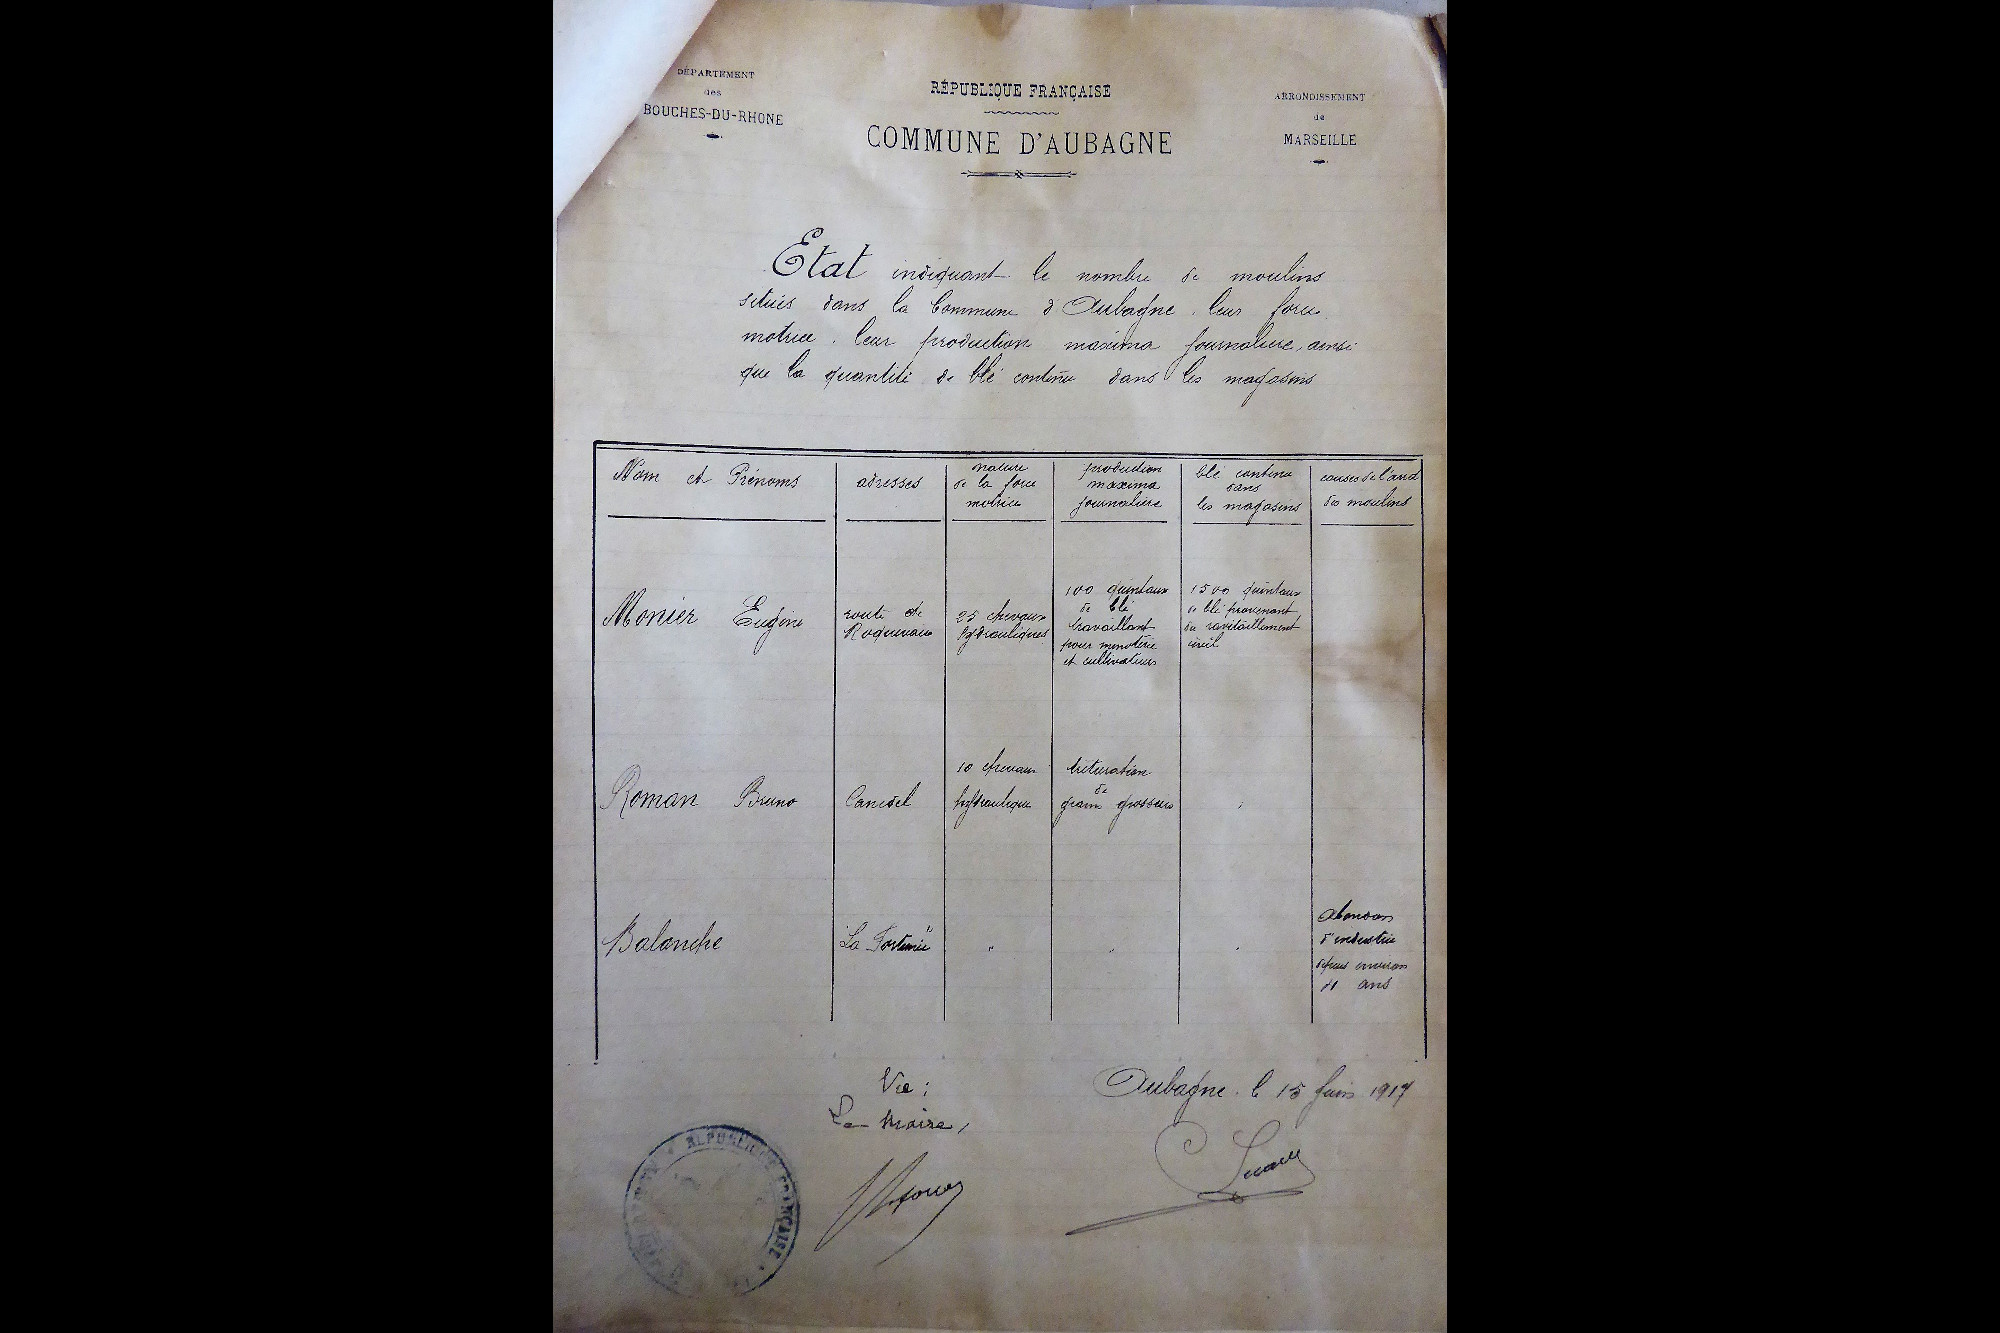 DÉPARTEMENT
des
BOUCHES-DU-RHONE
RÉPUBLIQUE FRANÇAISE
COMMUNE D'AUBAGNE
ARRONDISSEMENT
de
MARSEILLE
Etat indiquant le nombre de moulins
situés dans la Commune d'Aubagne, leur force
motrice, leur production maxima journalière, ainsi
que la quantité de blé contenu dans les magasins
Nom et Prénoms
adresses
nature
de la force
motrice
production
maxima
journalière
blé contenu
dans
les magasins
causes de l'arrêt
des moulins
Monier Eugène
route de
Roquevaire
25 chevaux
hydrauliques
100 quintaux
de blé
travaillant
pour minoterie
et cultivateurs
1500 quintaux
de blé provenant
du ravitaillement
civil
Roman Bruno
Canedel
10 chevaux
hydraulique
trituration
de
grains grossiers
Balanche
"La Fortunée"
"
abandon
d'industrie
depuis environ
ans
Vu:
Le Maire,
Aubagne, le 15 Juin 1917
RÉPUBLIQUE FRANÇAISE